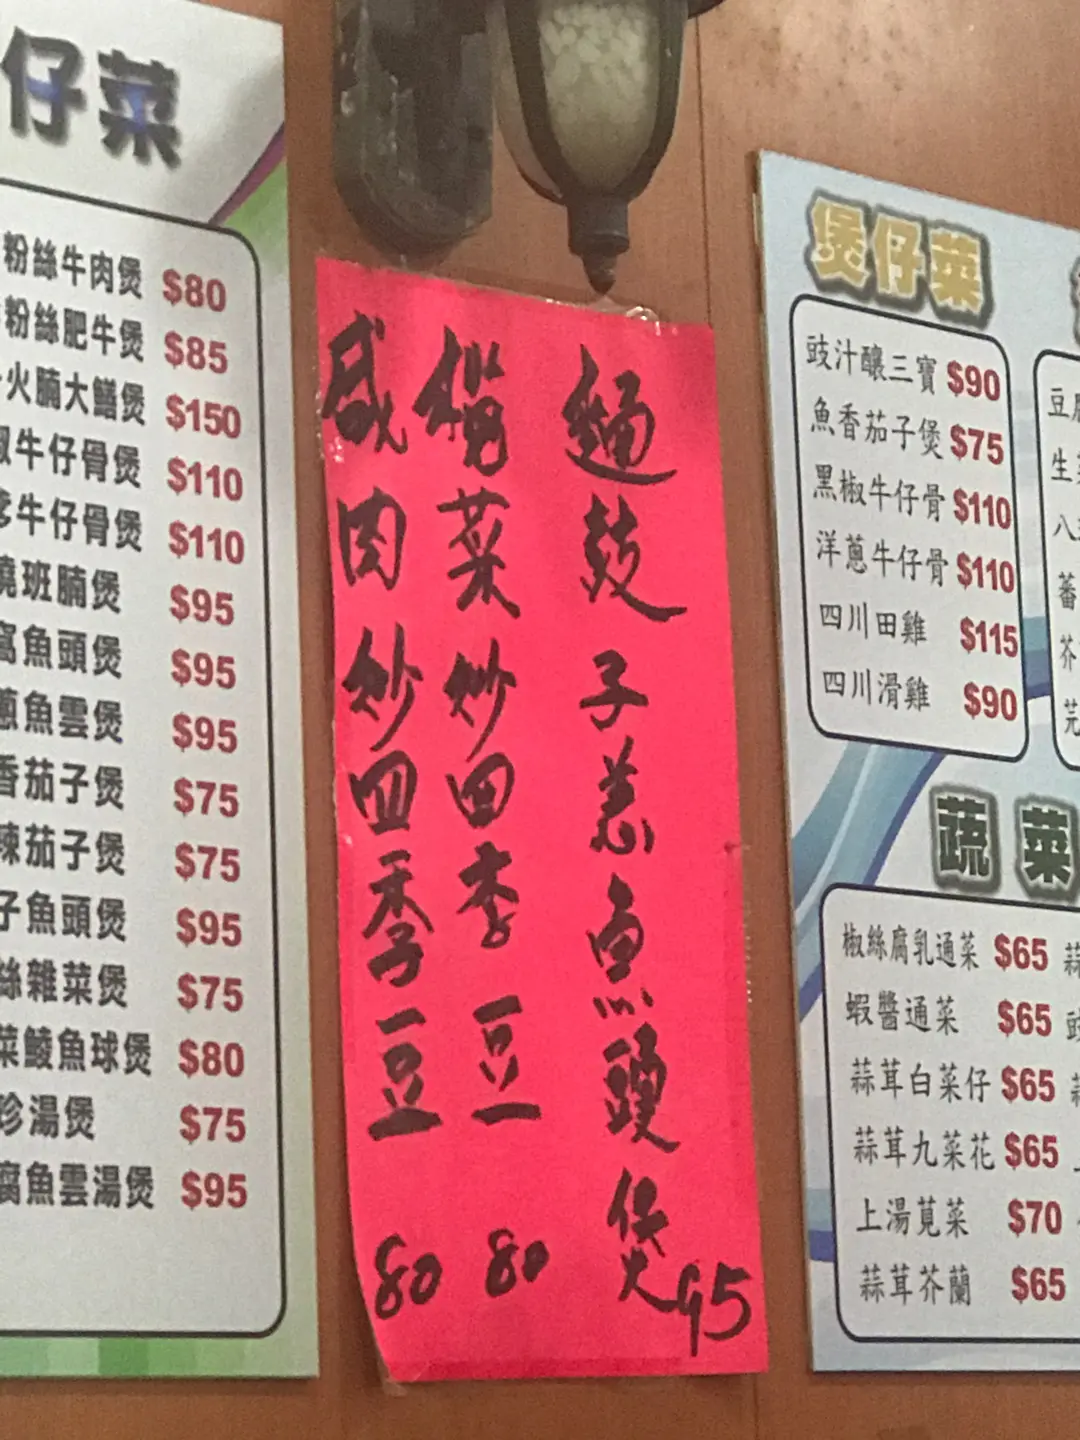 仔菜
粉絲牛肉煲 $80
粉絲肥牛煲 $85
火腩大鱔煲 $150
椒牛仔骨煲 $110
牛仔骨煲 $110
班腩煲 $95
窩魚頭煲 $95
蔥魚雲煲 $95
香茄子煲 $75
辣茄子煲 $75
子魚頭煲 $95
絲雜菜煲 $75
菜鯪魚球煲 $80
珍湯煲 $75
腐魚雲湯煲 $95
麵豉子羌魚頭煲 95
欖菜炒四季豆 80
咸肉炒四季豆 80
煲仔菜
豉汁釀三寶 $90
魚香茄子煲 $75
黑椒牛仔骨 $110
洋蔥牛仔骨 $110
四川田雞 $115
四川滑雞 $90
豆
生
八
蕃
芥
芫
蔬菜
椒絲腐乳通菜 $65
蝦醬通菜 $65
蒜茸白菜仔 $65
蒜茸九菜花 $65
上湯莧菜 $70
蒜茸芥蘭 $65